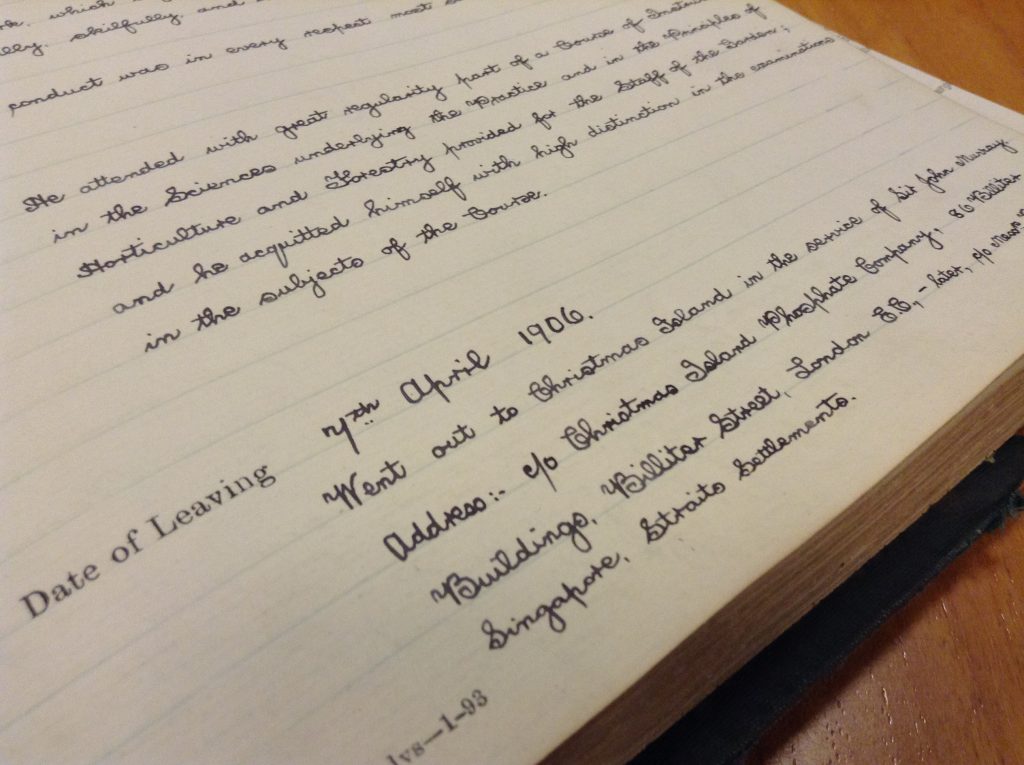 which
skilfully, and
conduct was in every respect most
He attended with great regularity part of a Course of
in the Sciences underlying the Practice and in the Principles of
Horticulture and Forestry provided for the Staff of the Garden;
and he acquitted himself with high distinction in the examinations
in the subjects of the Course.
Date of Leaving 7th April 1906.
Went out to Christmas Island in the service of Sir John Murray
Address:- c/o Christmas Island Phosphate Company, 86 Billiter
Buildings, Billiter Street, London E.C., - later, c/o
Singapore, Straits Settlements.
lvs—1-93